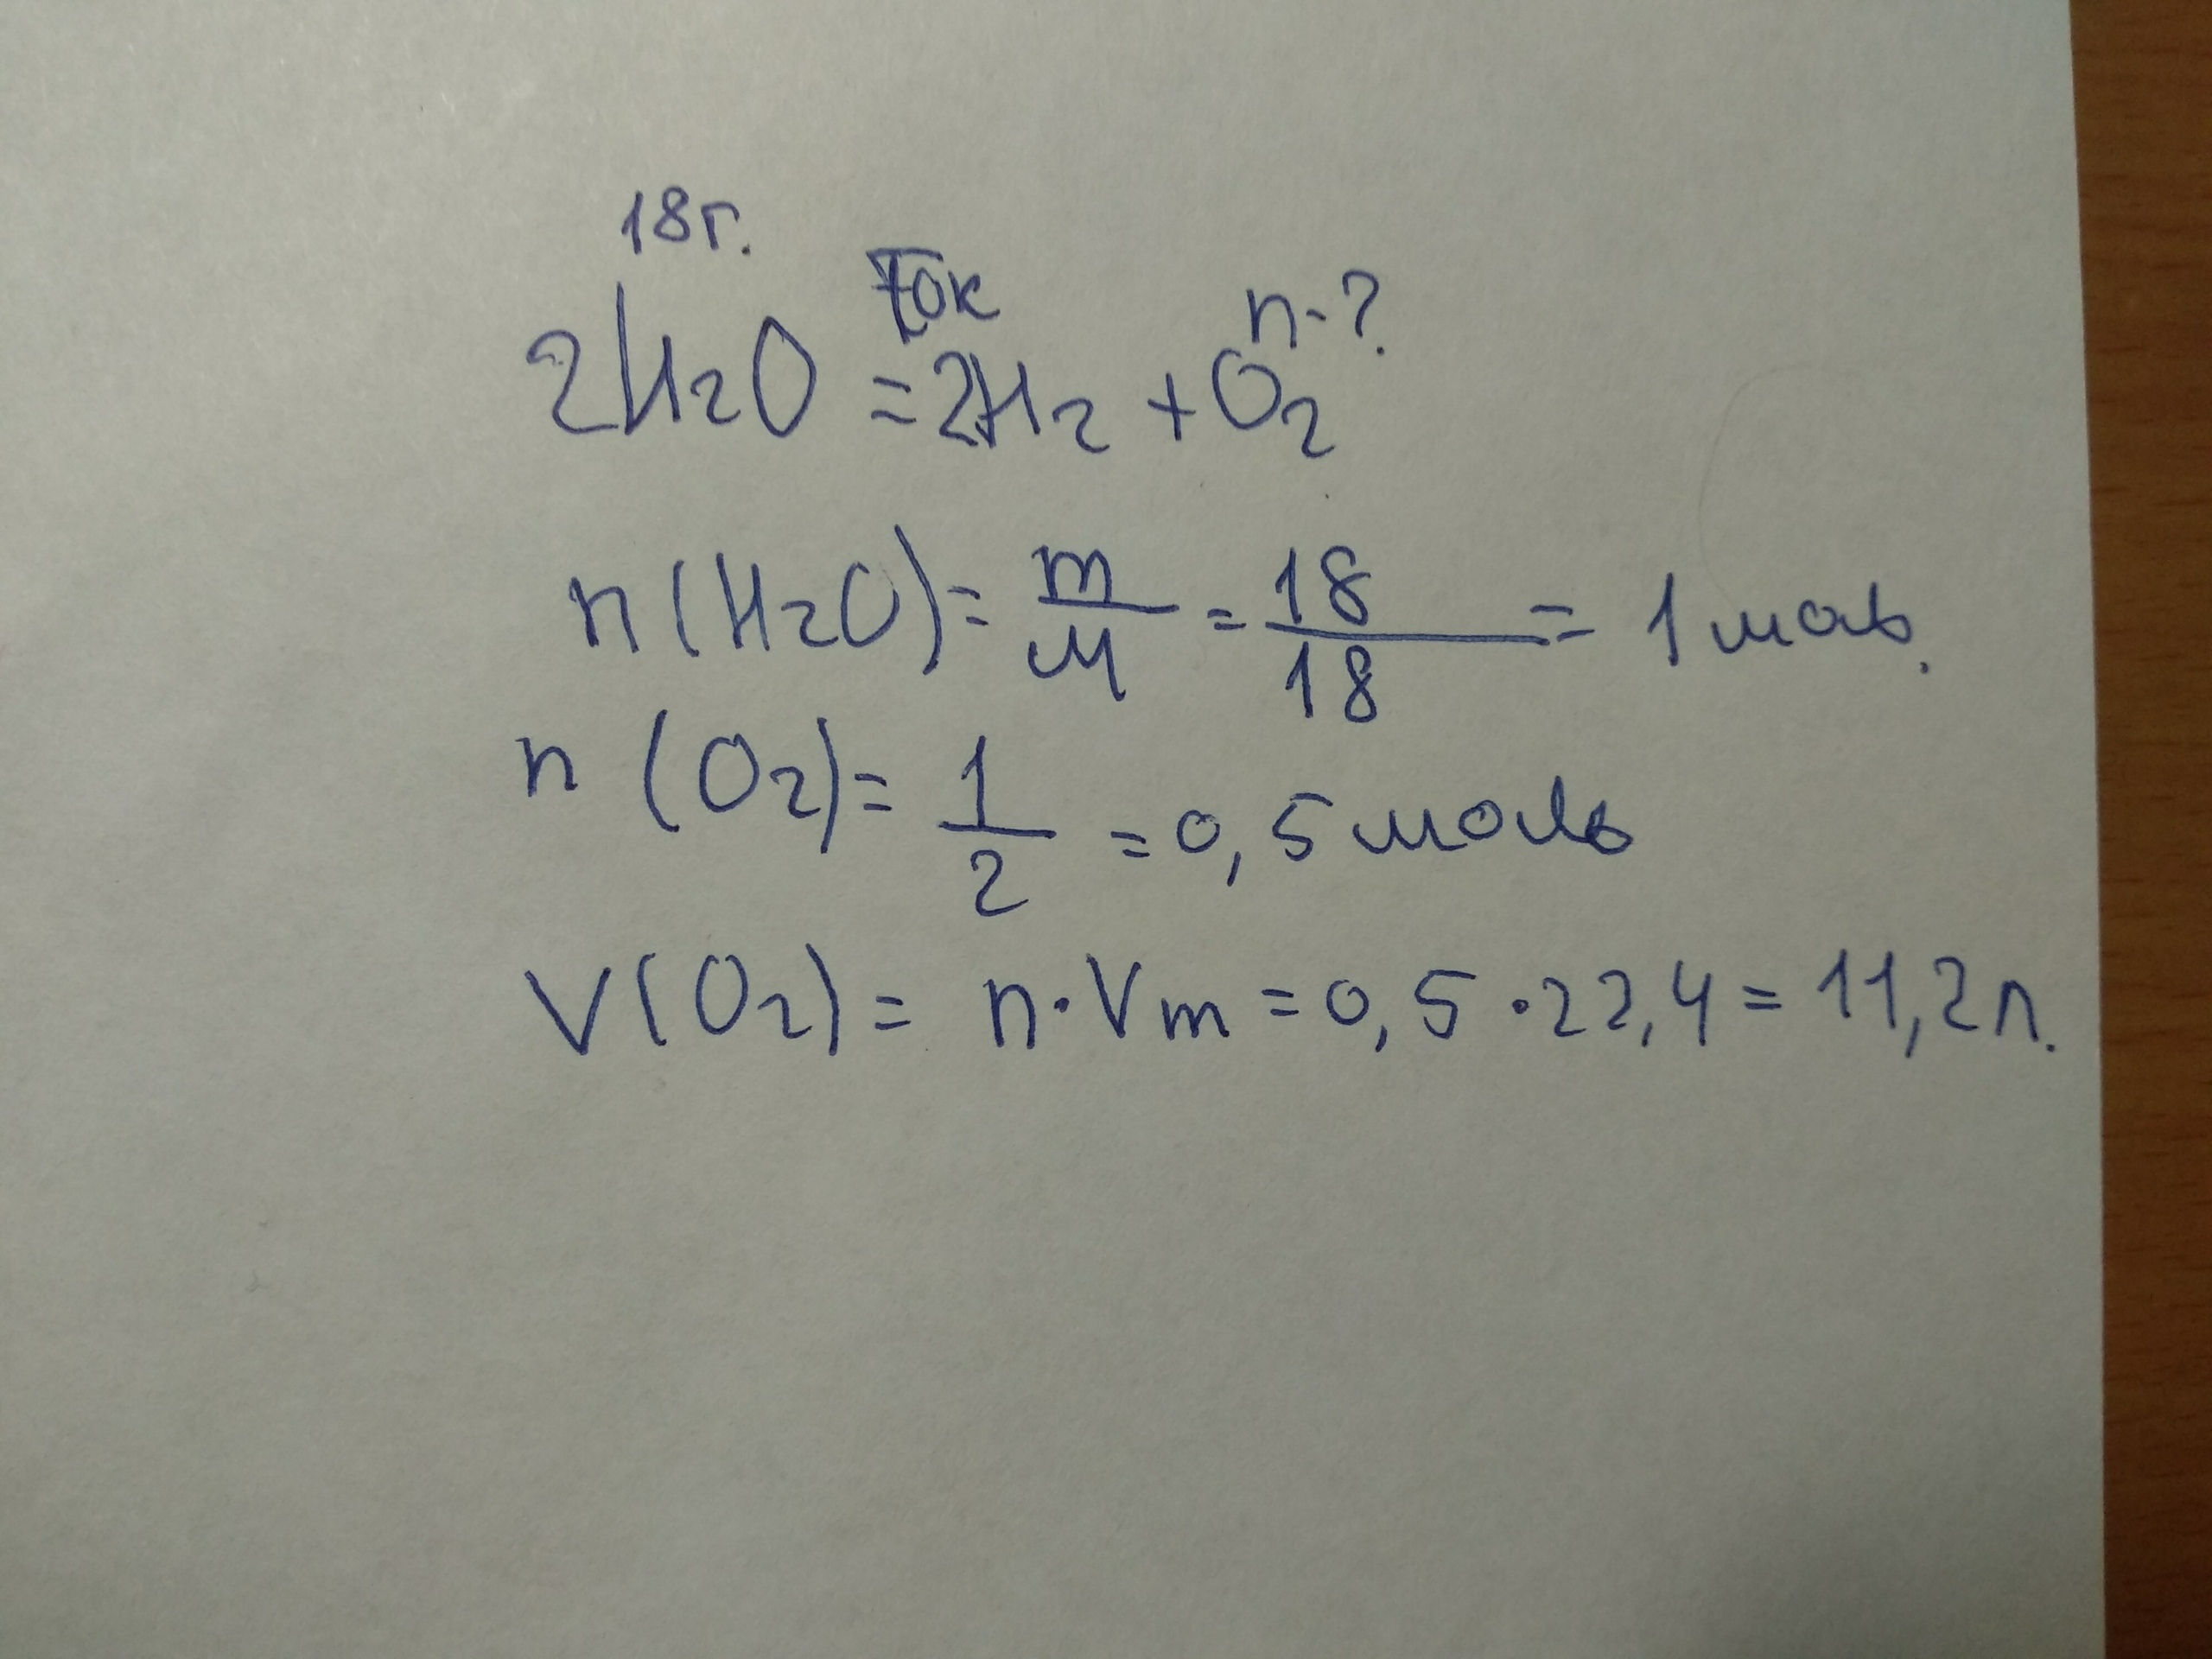 18г.
ток
n-?
2H₂O = 2H₂ + O₂
n(H₂O) = m/M = 18/18 = 1 моль.
n (O₂) = 1/2 = 0,5 моль
V(O₂) = n·Vm = 0,5·22,4 = 11,2л.